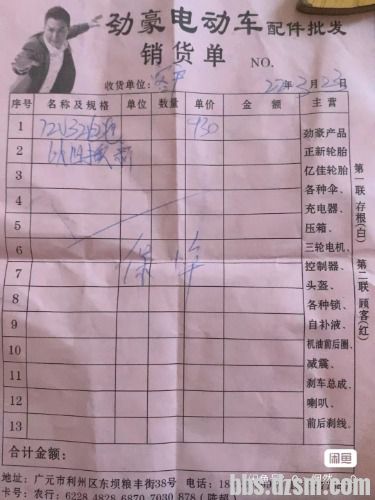 劲豪电动车配件批发
销货单 NO.
收货单位: 22年3月23日
序号 名称及规格 单位 数量 单价 金额 主营
1 930
2
3
4
5
6
7
8
9
10
11
12
13
劲豪产品
正新轮胎
亿佳轮胎
各种伞、
充电器、
压箱、
三轮电机、
控制器、
头盔、
各种锁、
自补液、
机油前后圈、
减震、
刹车总成、
喇叭、
前后刹线、
第一联 存根(白)
第二联 顾客(红)
合计金额:
地址:广元市利州区东坝粮丰街38号 电话:18
卡号:农行:6228 4828 6870 7030 878
闲鱼
bbs.dzsm.com